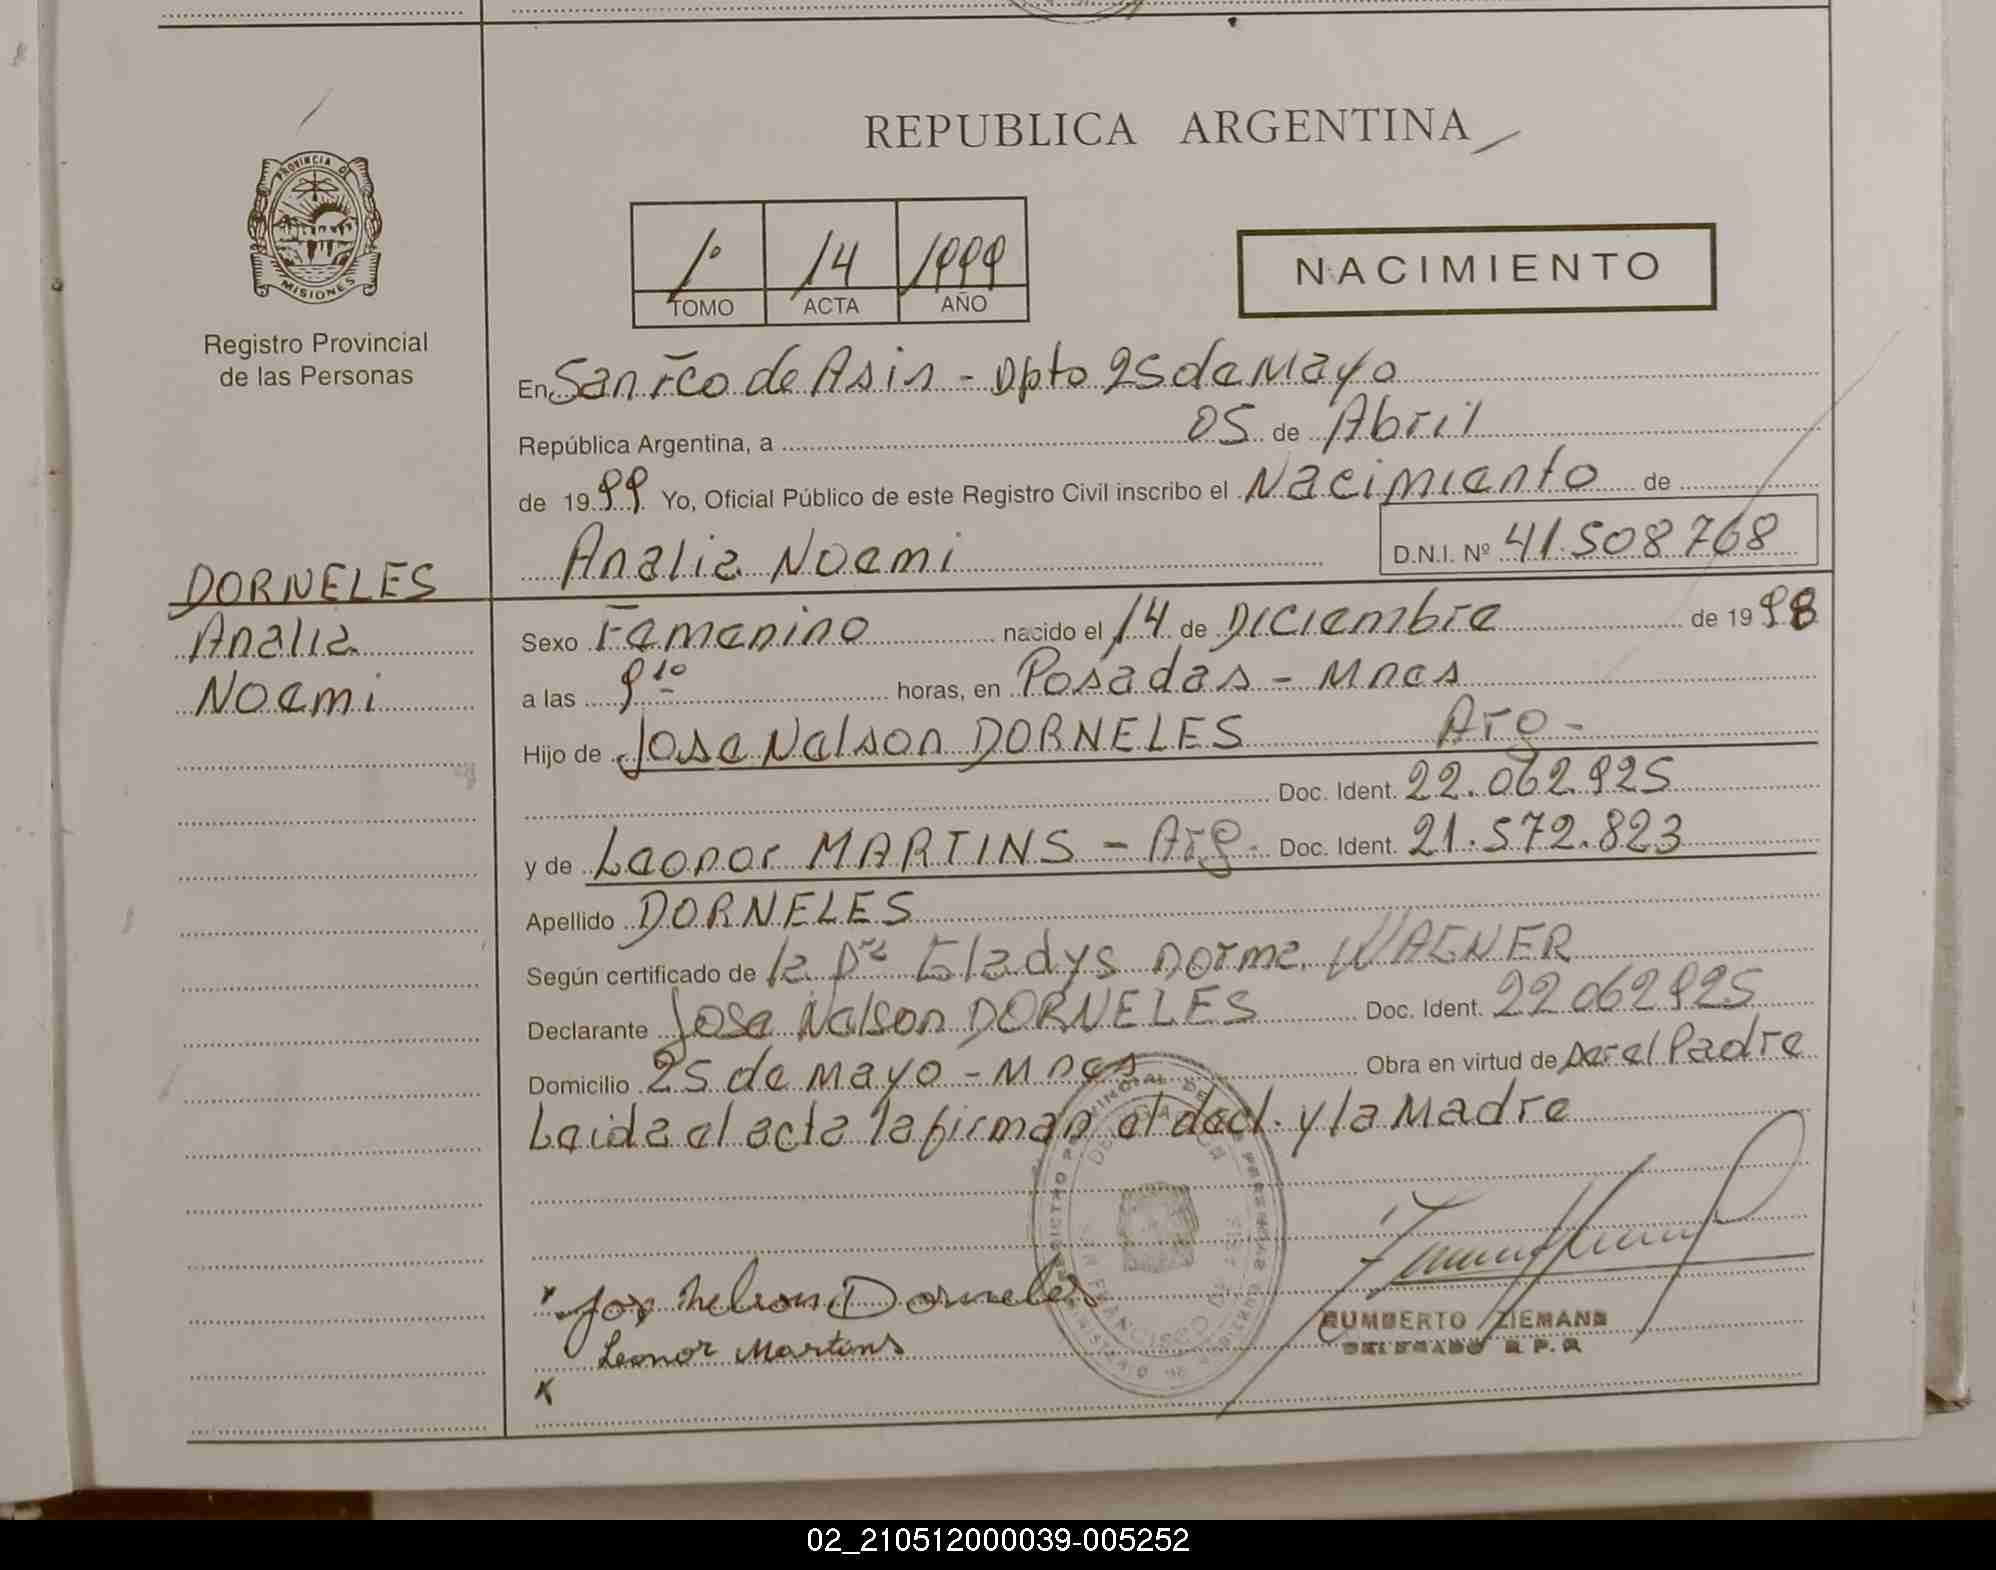 REPUBLICA ARGENTINA
PROVINCIA DE
MISIONES
Registro Provincial
de las Personas
1º 14 1999
TOMO ACTA AÑO
NACIMIENTO
En San Fco de Asis - Dpto 25 de Mayo
República Argentina, a 05 de Abril
de 1999 Yo, Oficial Público de este Registro Civil inscribo el Nacimiento de
Analia Noemi D.N.I. Nº 41.508768
DORNELES
Analia
Noemi
Sexo Femenino nacido el 14 de Diciembre de 1998
a las 9 10 horas, en Posadas - Mnes
Hijo de Jose Nelson DORNELES Arg -
Doc. Ident. 22.062.925
y de Leonor MARTINS - Arg - Doc. Ident. 21.572.823
Apellido DORNELES
Según certificado de la Dra Gladys Norma WAGNER
Declarante Jose Nelson DORNELES Doc. Ident. 22062925
Domicilio 25 de Mayo - Mnes Obra en virtud de ser el Padre
Leida el acta la firman el decl. y la Madre
x Jose Nelson Dorneles
Leonor Martins
x
HUMBERTO ZIEMANN
DELEGADO R.P.R
02_210512000039-005252